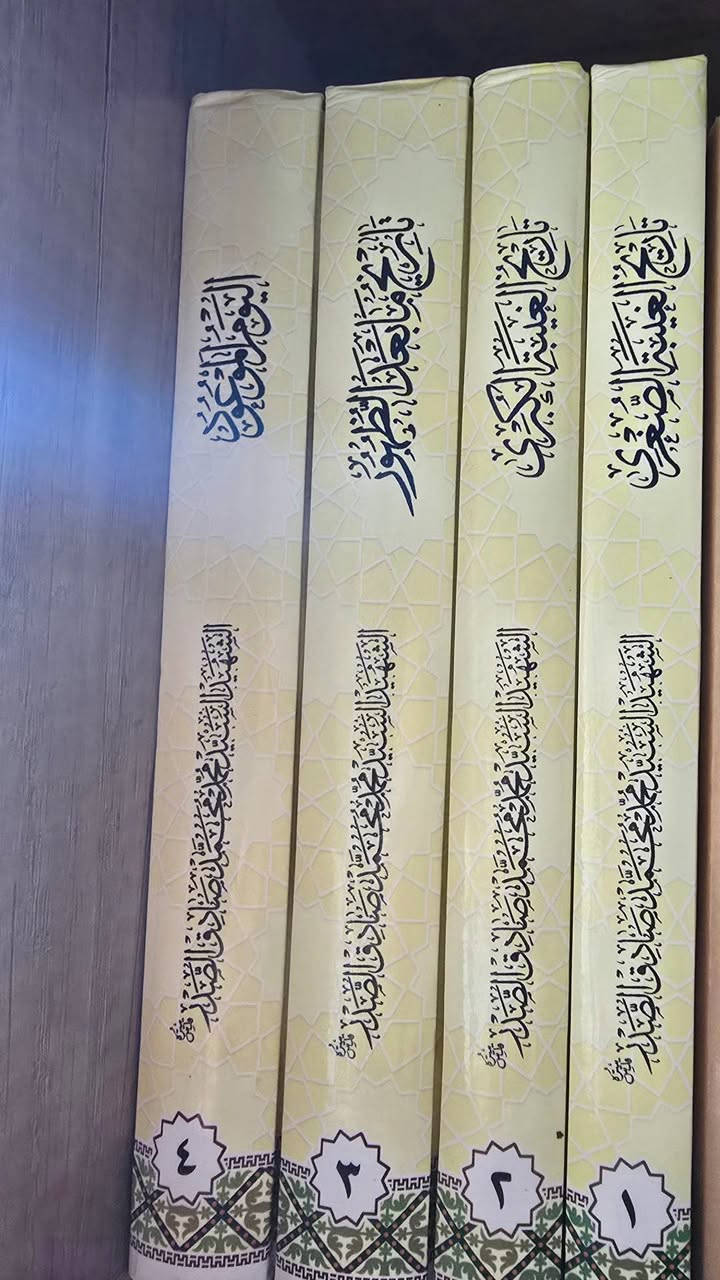 تاريخ الغيبة الصغرى
الشهيد السيد محمد محمد صادق الصدر
١
تاريخ الغيبة الكبرى
الشهيد السيد محمد محمد صادق الصدر
٢
تاريخ ما بعد الظهور
الشهيد السيد محمد محمد صادق الصدر
٣
اليوم الموعود
الشهيد السيد محمد محمد صادق الصدر
٤